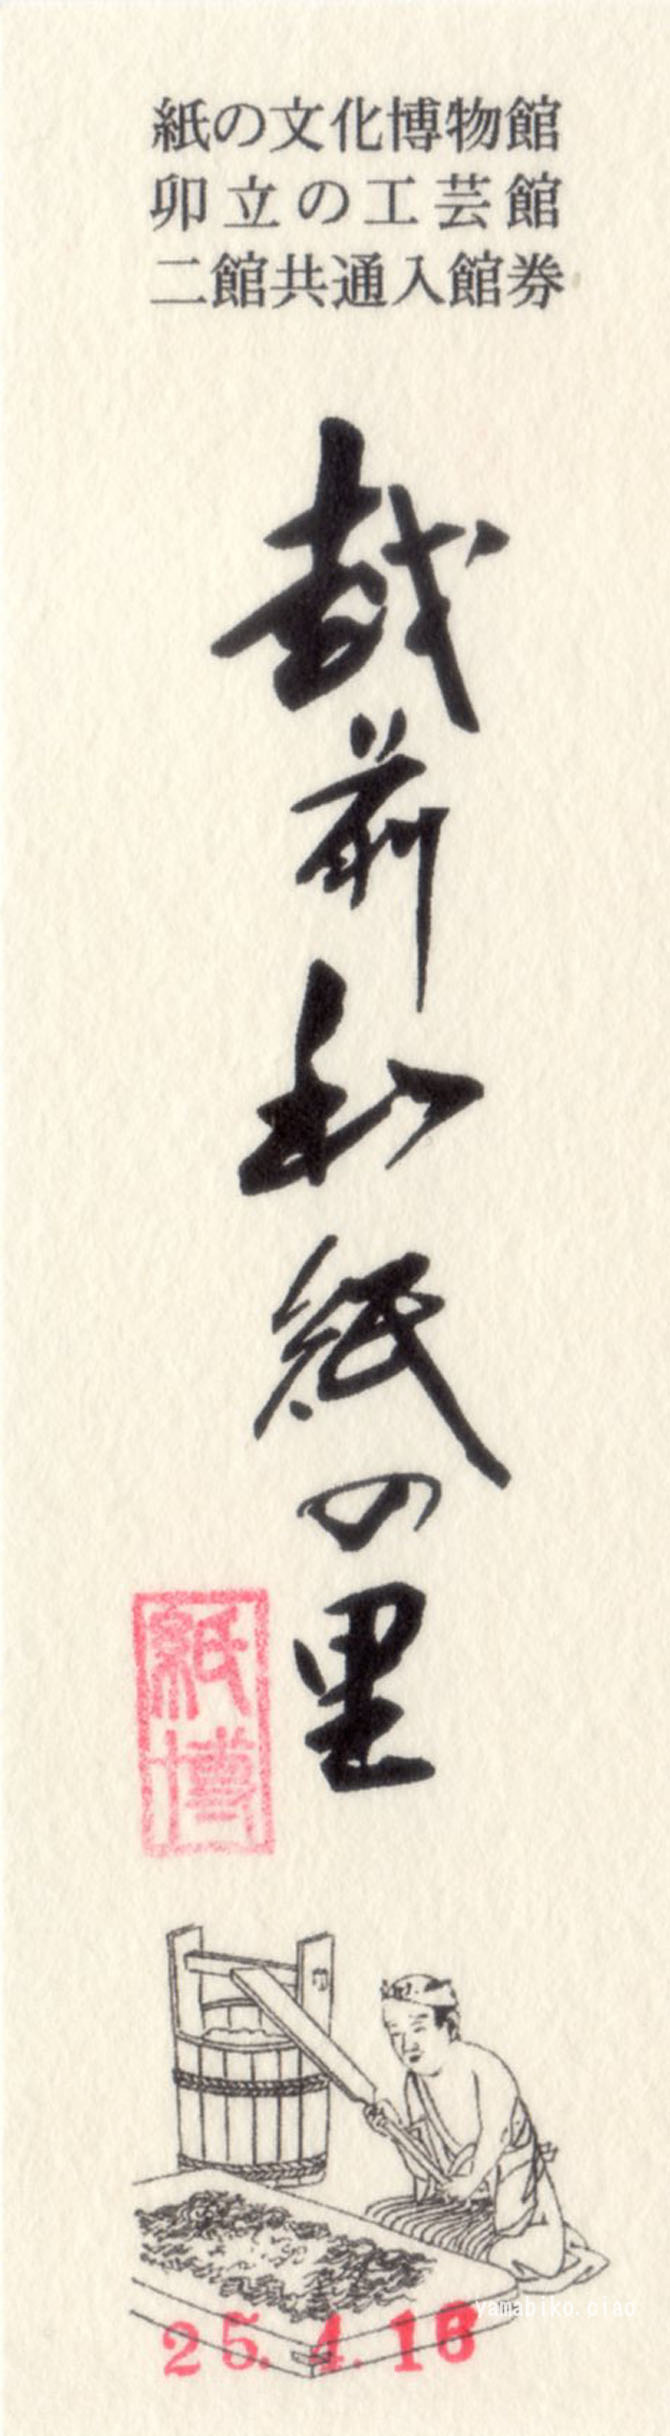 紙の文化博物館
卯立の工芸館
二館共通入館券
越前和紙の里
紙博
25.4.16
yamabiko.ciao